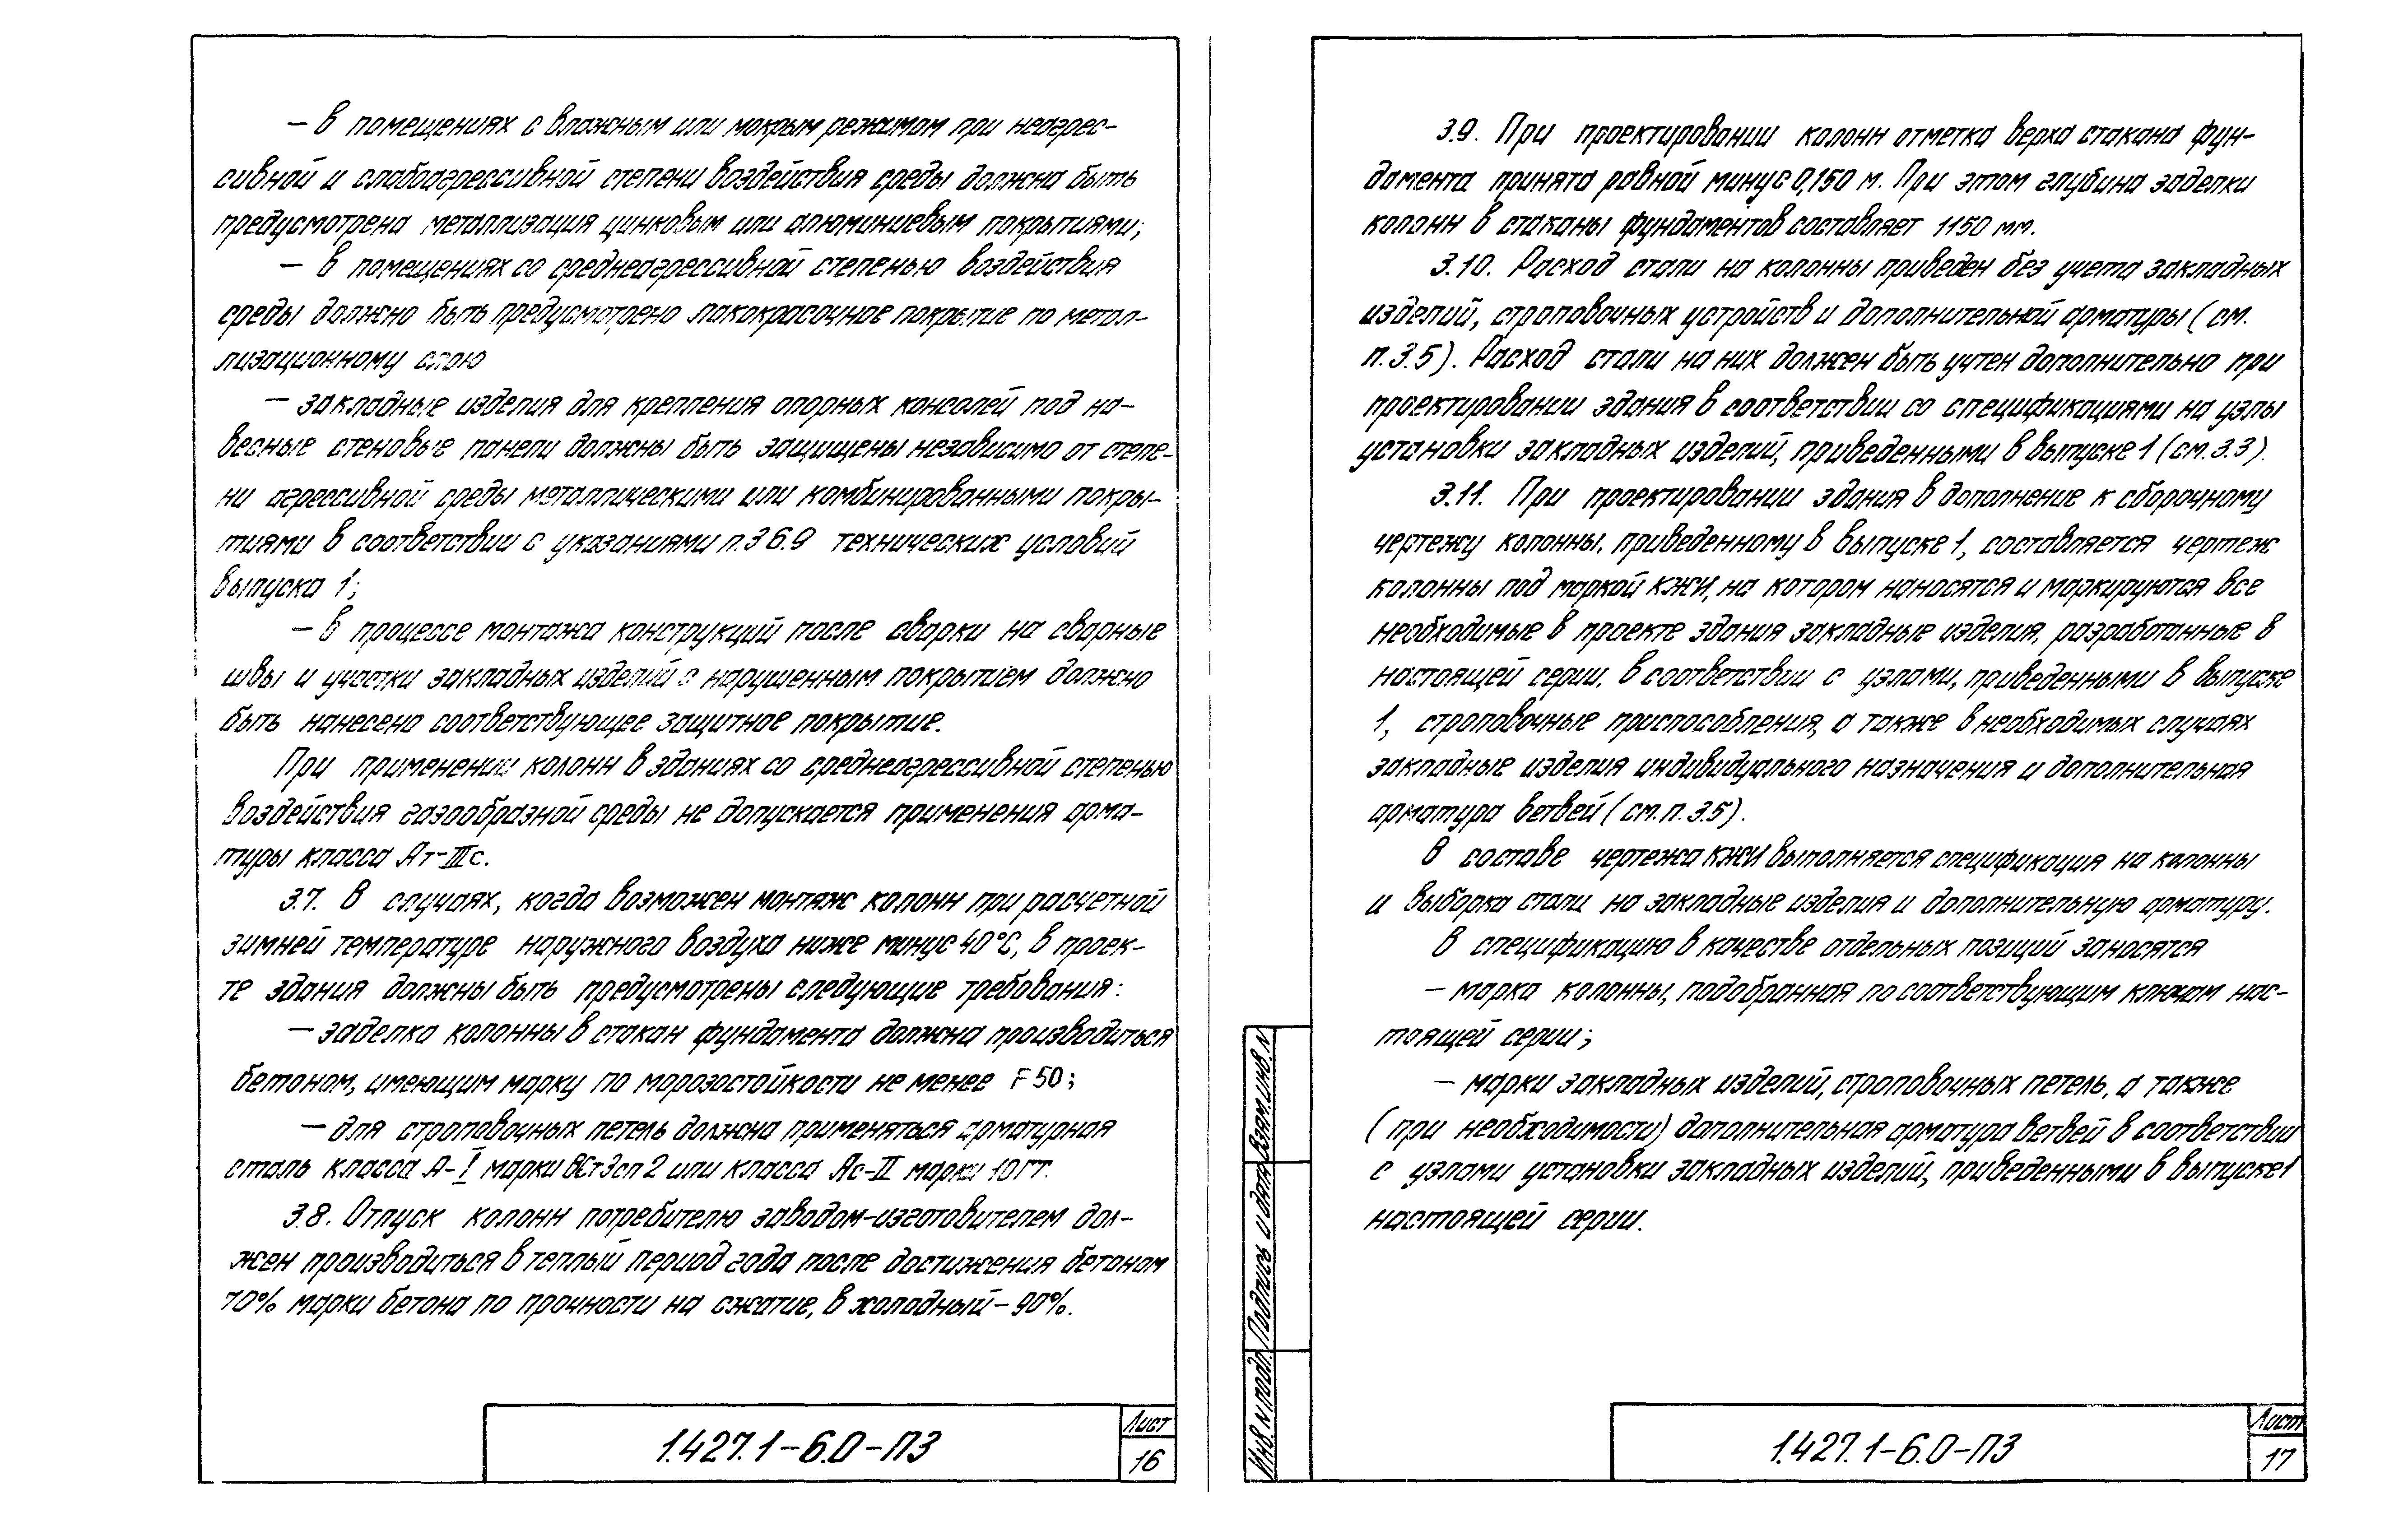 — в помещениях с влажным или мокрым режимом при неагрес-
сивной и слабоагрессивной степени воздействия среды должна быть
предусмотрена металлизация цинковым или алюминиевым покрытиями;
— в помещениях со среднеагрессивной степенью воздействия
среды должно быть предусмотрено лакокрасочное покрытие по метал-
лизационному слою
— закладные изделия для крепления опорных консолей под на-
весные стеновые панели должны быть защищены независимо от степе-
ни агрессивной среды металлическими или комбинированными покры-
тиями в соответствии с указаниями п.3 6.9 технических условий
выпуска 1;
— в процессе монтажа конструкций после сварки на сварные
швы и участки закладных изделий с нарушенным покрытием должно
быть нанесено соответствующее защитное покрытие.
При применении колонн в зданиях со среднеагрессивной степенью
воздействия газообразной среды не допускается применения арма-
туры класса Ат-IIIс.
3.7. В случаях, когда возможен монтаж колонн при расчетной
зимней температуре наружного воздуха ниже минус 40°С, в проек-
те здания должны быть предусмотрены следующие требования:
— заделка колонны в стакан фундамента должна производиться
бетоном, имеющим марку по морозостойкости не менее F50;
— для строповочных петель должна применяться арматурная
сталь класса А-I марки ВСт3сп2 или класса Ас-II марки 10ГТ.
3.8. Отпуск колонн потребителю заводом-изготовителем дол-
жен производиться в теплый период года после достижения бетоном
70% марки бетона по прочности на сжатие, в холодный — 90%.
1.427.1-6.0-ПЗ
Лист
16
3.9. При проектировании колонн отметка верха стакана фун-
дамента принята равной минус 0,150 м. При этом глубина заделки
колонн в стаканы фундаментов составляет 1150 мм.
3.10. Расход стали на колонны приведен без учета закладных
изделий, строповочных устройств и дополнительной арматуры (см.
п.3.5). Расход стали на них должен быть учтен дополнительно при
проектировании здания в соответствии со спецификациями на узлы
установки закладных изделий, приведенными в выпуске 1 (см. 3.3).
3.11. При проектировании здания в дополнение к сборочному
чертежу колонны, приведенному в выпуске 1, составляется чертеж
колонны под маркой КЖИ, на котором наносятся и маркируются все
необходимые в проекте здания закладные изделия, разработанные в
настоящей серии, в соответствии с узлами, приведенными в выпуске
1, строповочные приспособления, а также в необходимых случаях
закладные изделия индивидуального назначения и дополнительная
арматура ветвей (см. п. 3.5).
В составе чертежа КЖИ выполняется спецификация на колонны
и выборка стали на закладные изделия и дополнительную арматуру.
В спецификацию в качестве отдельных позиций заносятся
— марка колонны, подобранная по соответствующим ключам нас-
тоящей серии;
— марки закладных изделий, строповочных петель, а также
(при необходимости) дополнительная арматура ветвей в соответствии
с узлами установки закладных изделий, приведенными в выпуске 1
настоящей серии.
Взам.инв.N
Подпись и дата
Инв.N подл.
1.427.1-6.0-ПЗ
Лист
17